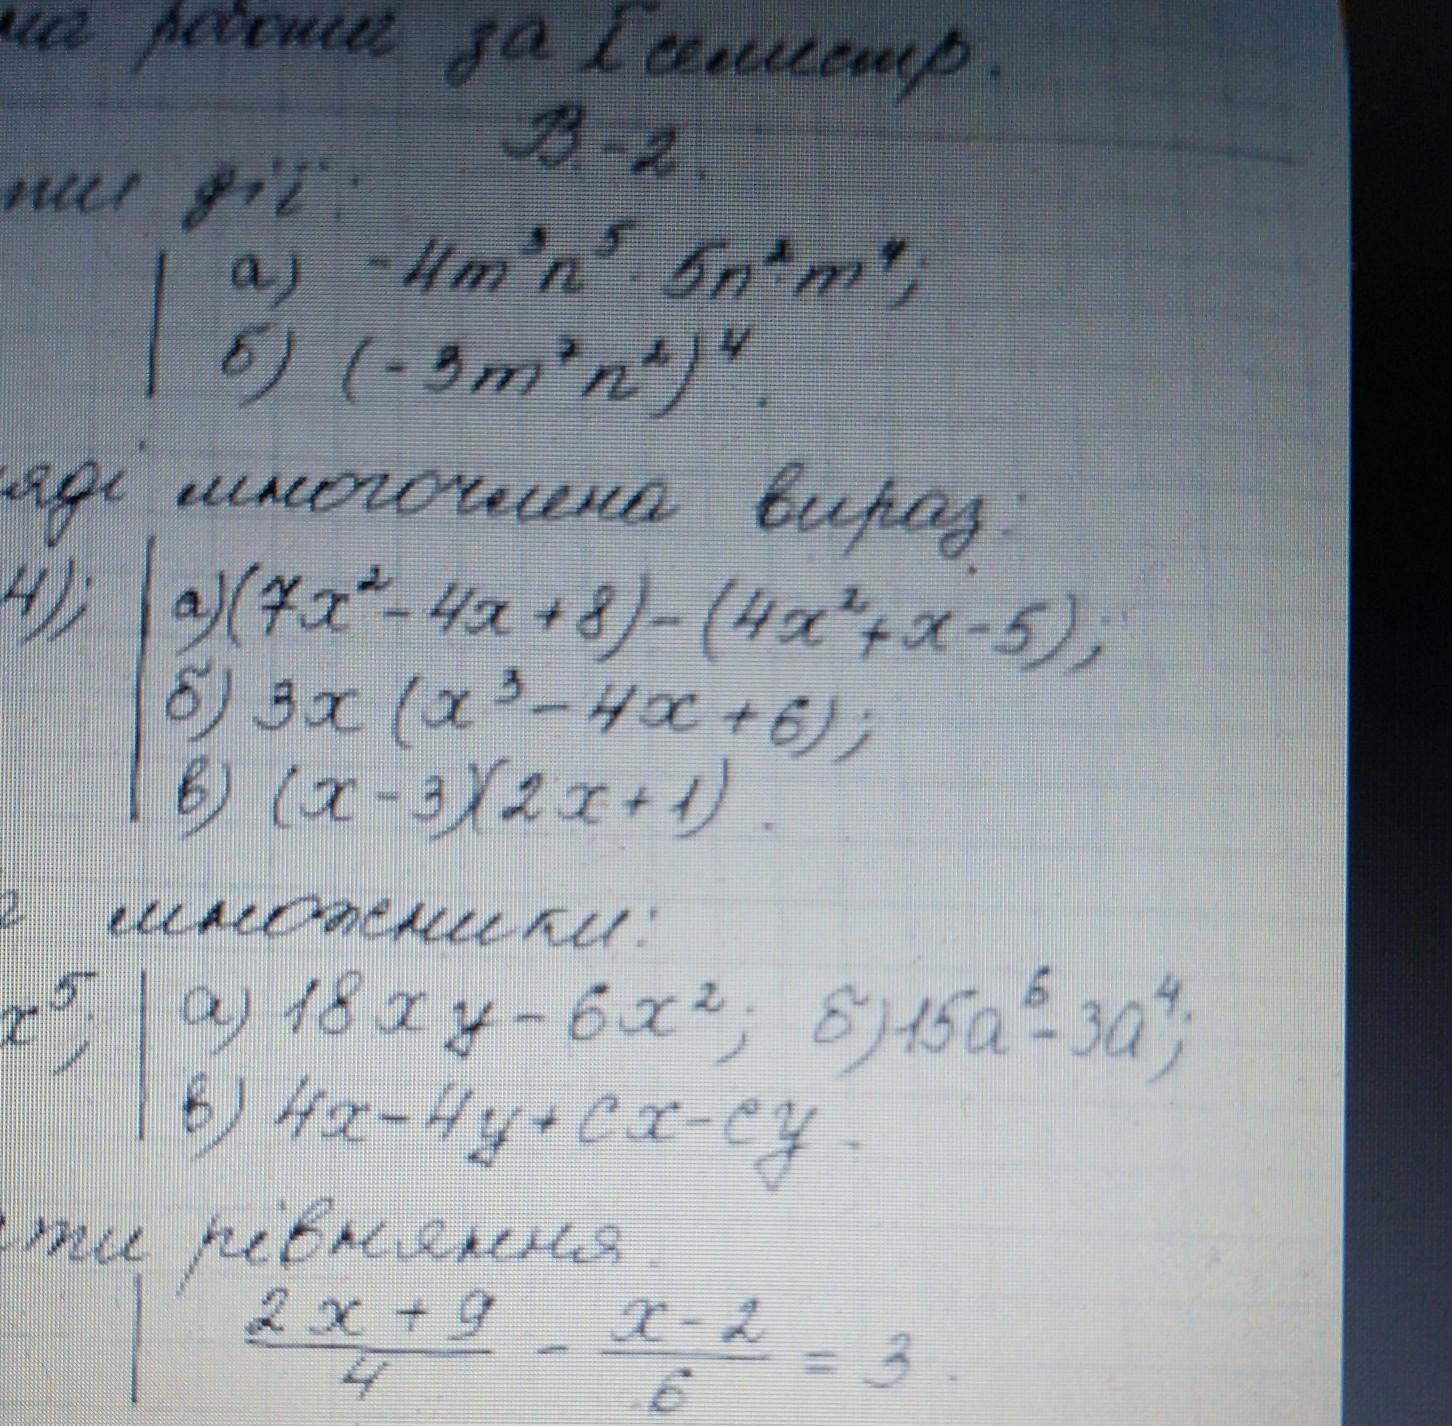 за І семистр.
В-2.
дії:
а) -4m³n⁵·5n²·m⁴;
б) (-3m⁷n²)⁴.
многочлена вираз:
4); а)(7x²-4x+8)-(4x²+x-5);
б) 3x(x³-4x+6);
в) (x-3)(2x+1).
множники:
x⁵; а) 18xy-6x²; б)15a⁶-3a⁴;
в) 4x-4y+cx-cy.
рівняння.
2x+9/4 - x-2/6 = 3.